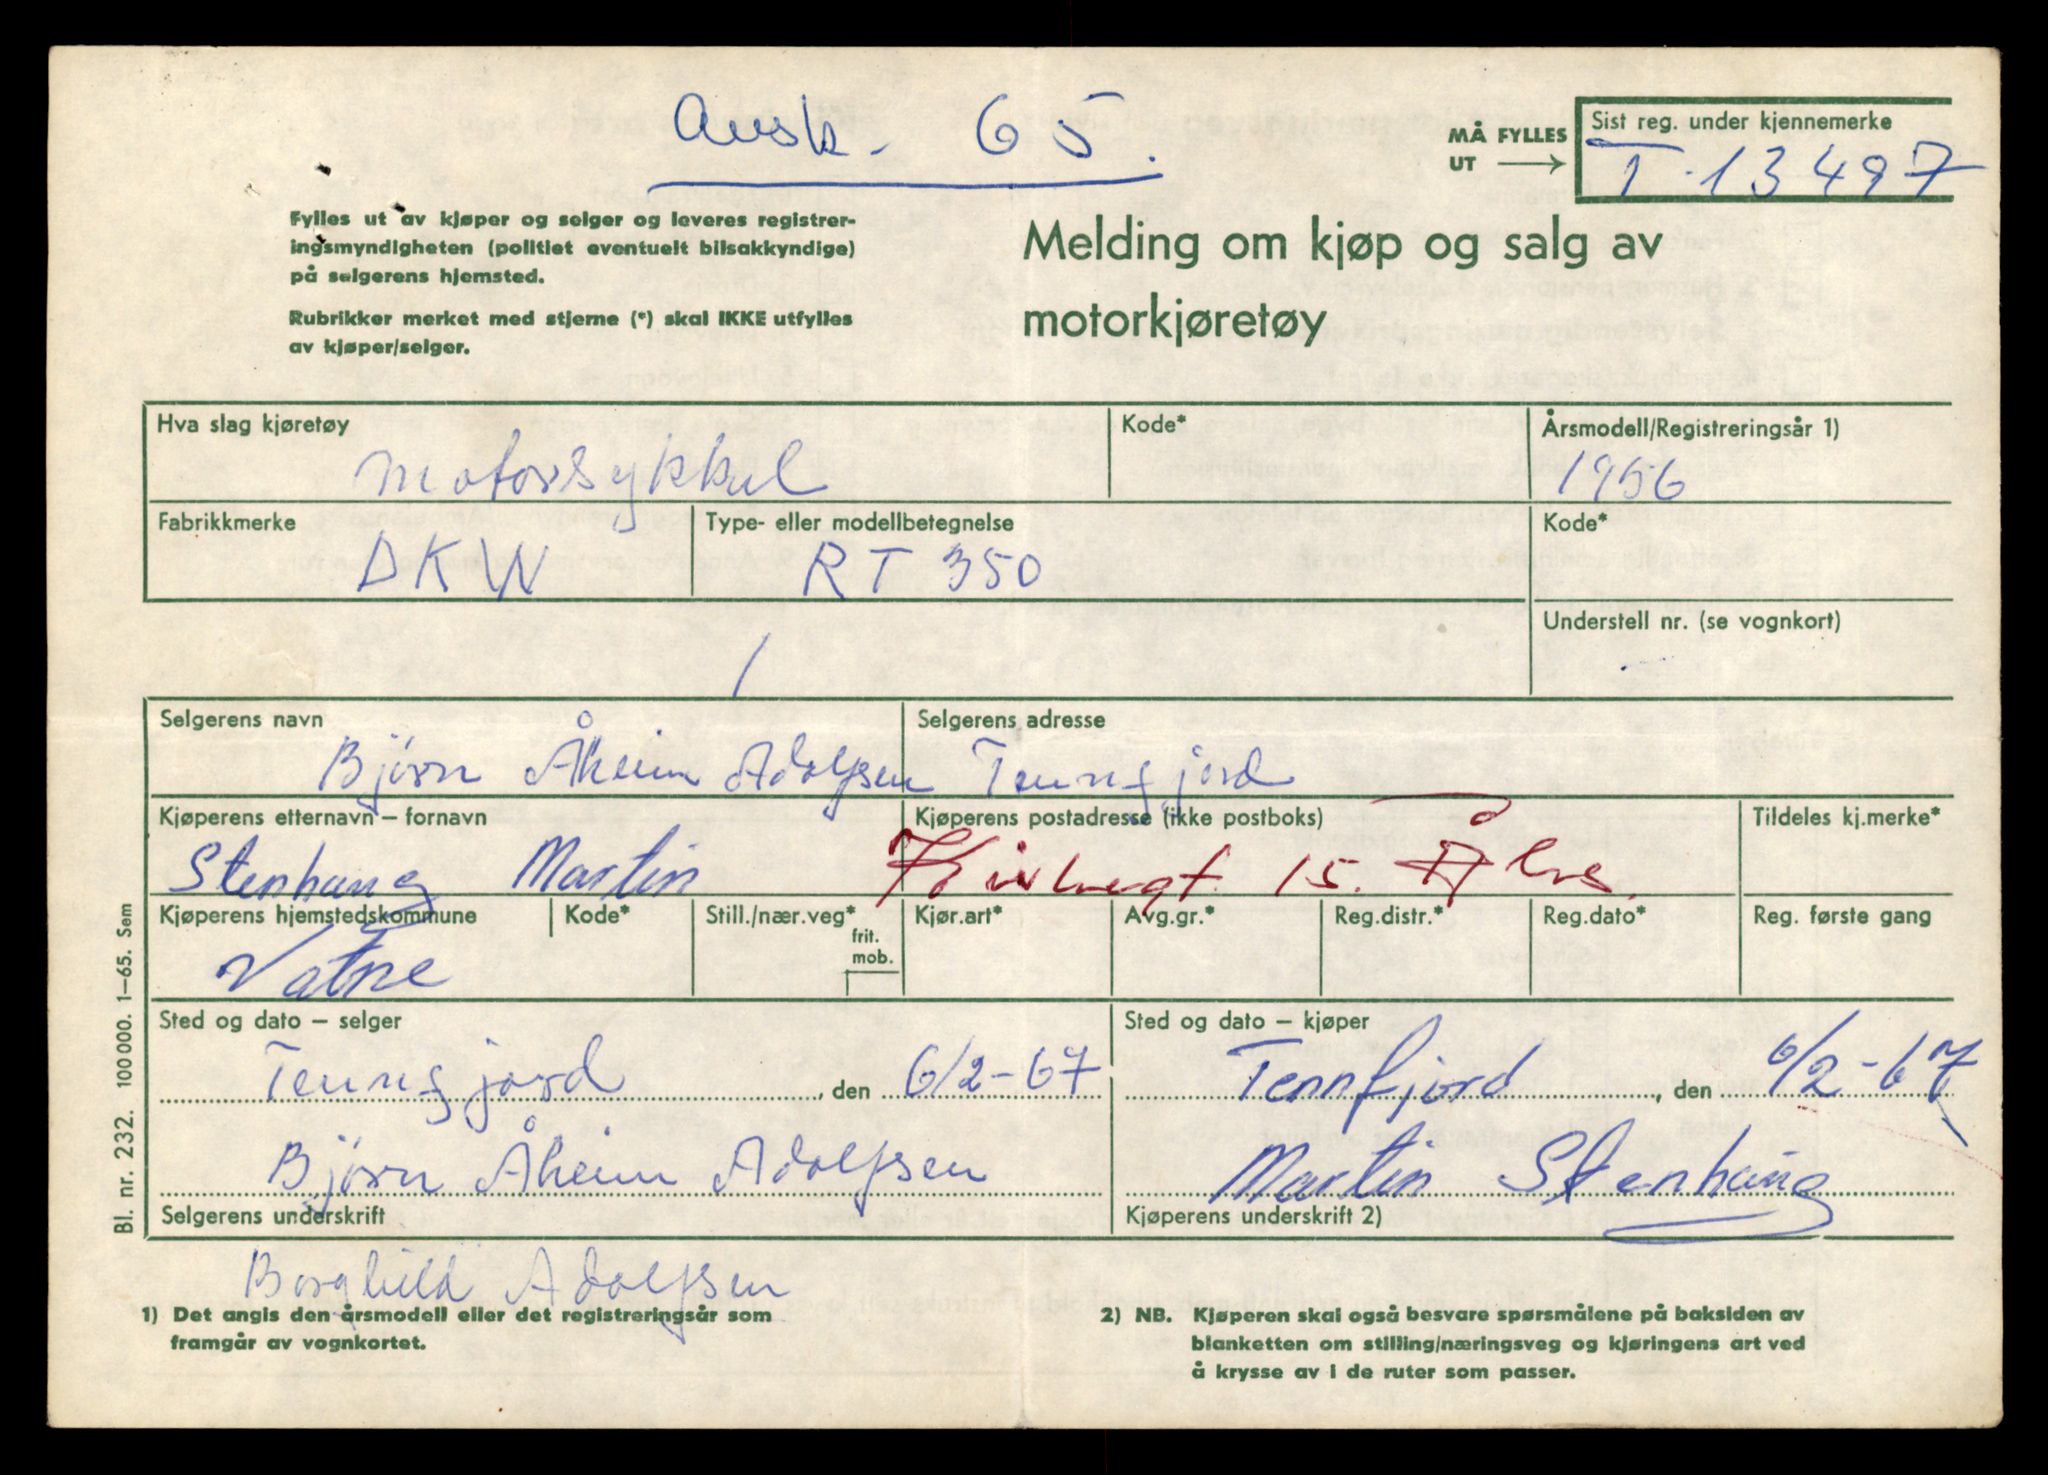 Avsk. 65.
MÅ FYLLES
UT →
Sist reg. under kjennemerke
T-13497
Fylles ut av kjøper og selger og leveres registrer-
ingsmyndigheten (politiet eventuelt bilsakkyndige)
på selgerens hjemsted.
Rubrikker merket med stjerne (*) skal IKKE utfylles
av kjøper/selger.
Melding om kjøp og salg av
motorkjøretøy
Hva slag kjøretøy
Kode*
Årsmodell/Registreringsår 1)
motorsykkel
1956
Fabrikkmerke
Type- eller modellbetegnelse
Kode*
DKW
RT 350
Understell nr. (se vognkort)
Selgerens navn
Selgerens adresse
Bjørn Åheim Adolfsen
Tennfjord
Kjøperens etternavn – fornavn
Kjøperens postadresse (ikke postboks)
Tildeles kj.merke*
Stenhaug Martin
15. Å
Kjøperens hjemstedskommune
Kode*
Still./nær.veg*
frit.
mob.
Kjør.art*
Avg.gr.*
Reg.distr.*
Reg.dato*
Reg. første gang
Vatne
Sted og dato – selger
Sted og dato – kjøper
Tennfjord, den 6/2-67
Tennfjord, den 6/2-67
Bjørn Åheim Adolfsen
Martin Stenhaug
Selgerens underskrift
Kjøperens underskrift 2)
Borghild Adolfsen
1) Det angis den årsmodell eller det registreringsår som
framgår av vognkortet.
2) NB. Kjøperen skal også besvare spørsmålene på baksiden av
blanketten om stilling/næringsveg og kjøringens art ved
å krysse av i de ruter som passer.
Bl. nr. 232. 100 000. 1–65. Sem